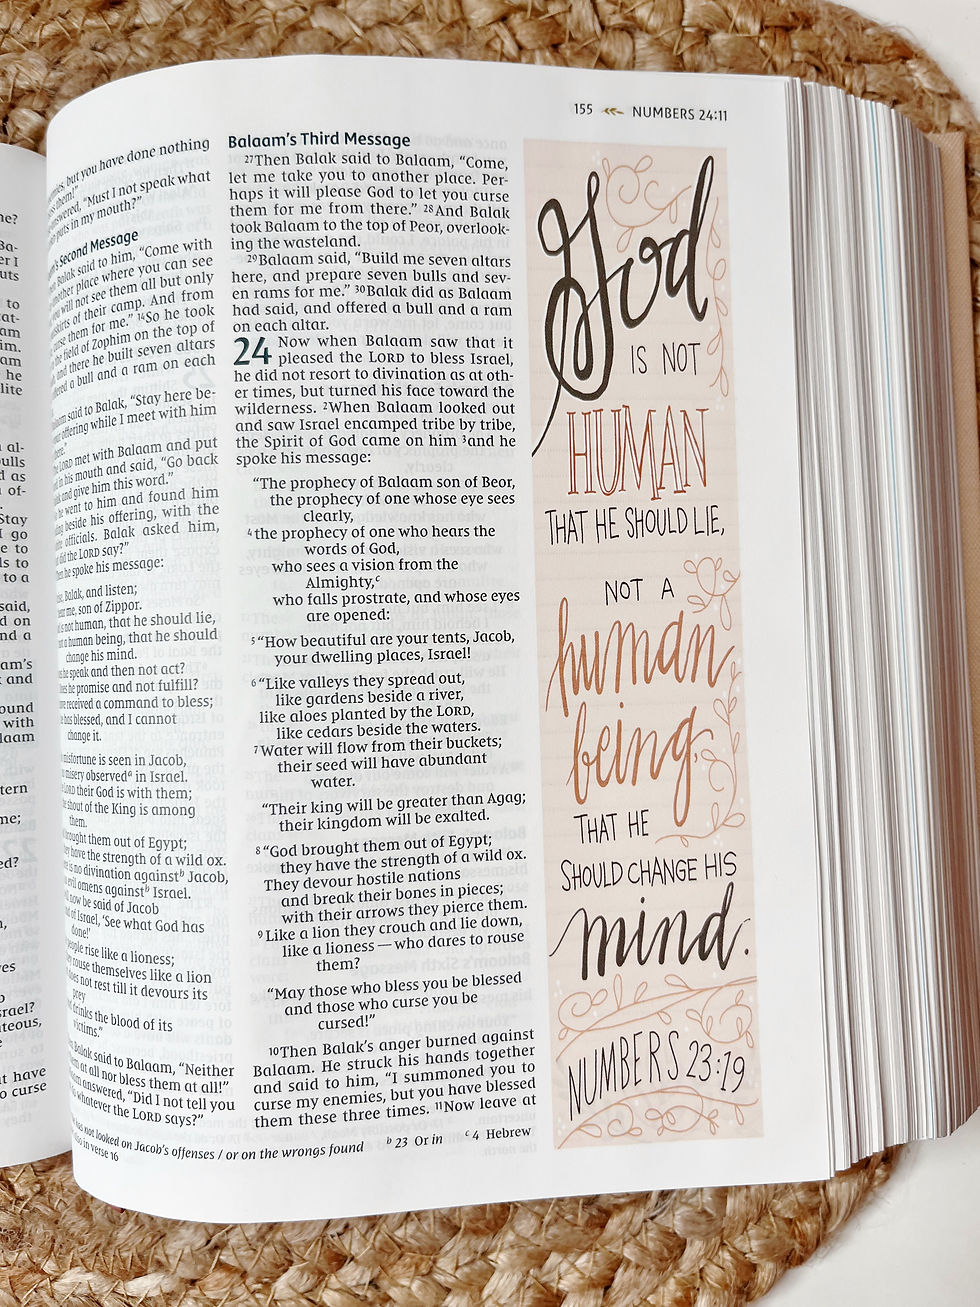 155 NUMBERS 24:11
but you have done nothing
them!"
answered, "Must I not speak what
puts in my mouth?"
Second Message
Balak said to him, "Come with
another place where you can see
you will not see them all but only
outskirts of their camp. And from
curse them for me." 14So he took
the field of Zophim on the top of
and there he built seven altars
offered a bull and a ram on each
said to Balak, "Stay here be-
your offering while I meet with him
there."
LORD met with Balaam and put
in his mouth and said, "Go back
and give him this word."
he went to him and found him
beside his offering, with the
officials. Balak asked him,
did the LORD say?"
he spoke his message:
Balak, and listen;
me, son of Zippor.
is not human, that he should lie,
not a human being, that he should
change his mind.
he speak and then not act?
he promise and not fulfill?
received a command to bless;
he has blessed, and I cannot
change it.
misfortune is seen in Jacob,
misery observedᵃ in Israel.
LORD their God is with them;
shout of the King is among
them.
brought them out of Egypt;
they have the strength of a wild ox.
is no divination againstᵇ Jacob,
evil omens againstᵇ Israel.
now be said of Jacob
of Israel, 'See what God has
done!'
people rise like a lioness;
they rouse themselves like a lion
does not rest till it devours its
prey
drinks the blood of its
victims."
Balak said to Balaam, "Neither
them at all nor bless them at all!"
answered, "Did I not tell you
whatever the LORD says?"
Balaam's Third Message
27Then Balak said to Balaam, "Come,
let me take you to another place. Per-
haps it will please God to let you curse
them for me from there." 28And Balak
took Balaam to the top of Peor, overlook-
ing the wasteland.
29Balaam said, "Build me seven altars
here, and prepare seven bulls and sev-
en rams for me." 30Balak did as Balaam
had said, and offered a bull and a ram
on each altar.
24 Now when Balaam saw that it
pleased the LORD to bless Israel,
he did not resort to divination as at oth-
er times, but turned his face toward the
wilderness. 2When Balaam looked out
and saw Israel encamped tribe by tribe,
the Spirit of God came on him 3and he
spoke his message:
"The prophecy of Balaam son of Beor,
the prophecy of one whose eye sees
clearly,
4the prophecy of one who hears the
words of God,
who sees a vision from the
Almighty,ᶜ
who falls prostrate, and whose eyes
are opened:
5"How beautiful are your tents, Jacob,
your dwelling places, Israel!
6"Like valleys they spread out,
like gardens beside a river,
like aloes planted by the LORD,
like cedars beside the waters.
7Water will flow from their buckets;
their seed will have abundant
water.
"Their king will be greater than Agag;
their kingdom will be exalted.
8"God brought them out of Egypt;
they have the strength of a wild ox.
They devour hostile nations
and break their bones in pieces;
with their arrows they pierce them.
9Like a lion they crouch and lie down,
like a lioness—who dares to rouse
them?
"May those who bless you be blessed
and those who curse you be
cursed!"
10Then Balak's anger burned against
Balaam. He struck his hands together
and said to him, "I summoned you to
curse my enemies, but you have blessed
them these three times. 11Now leave at
not looked on Jacob's offenses / or on the wrongs found ᵇ 23 Or in ᶜ 4 Hebrew
in verse 16
God
IS NOT
HUMAN
THAT HE SHOULD LIE,
NOT A
human
being,
THAT HE
SHOULD CHANGE HIS
mind.
NUMBERS 23:19